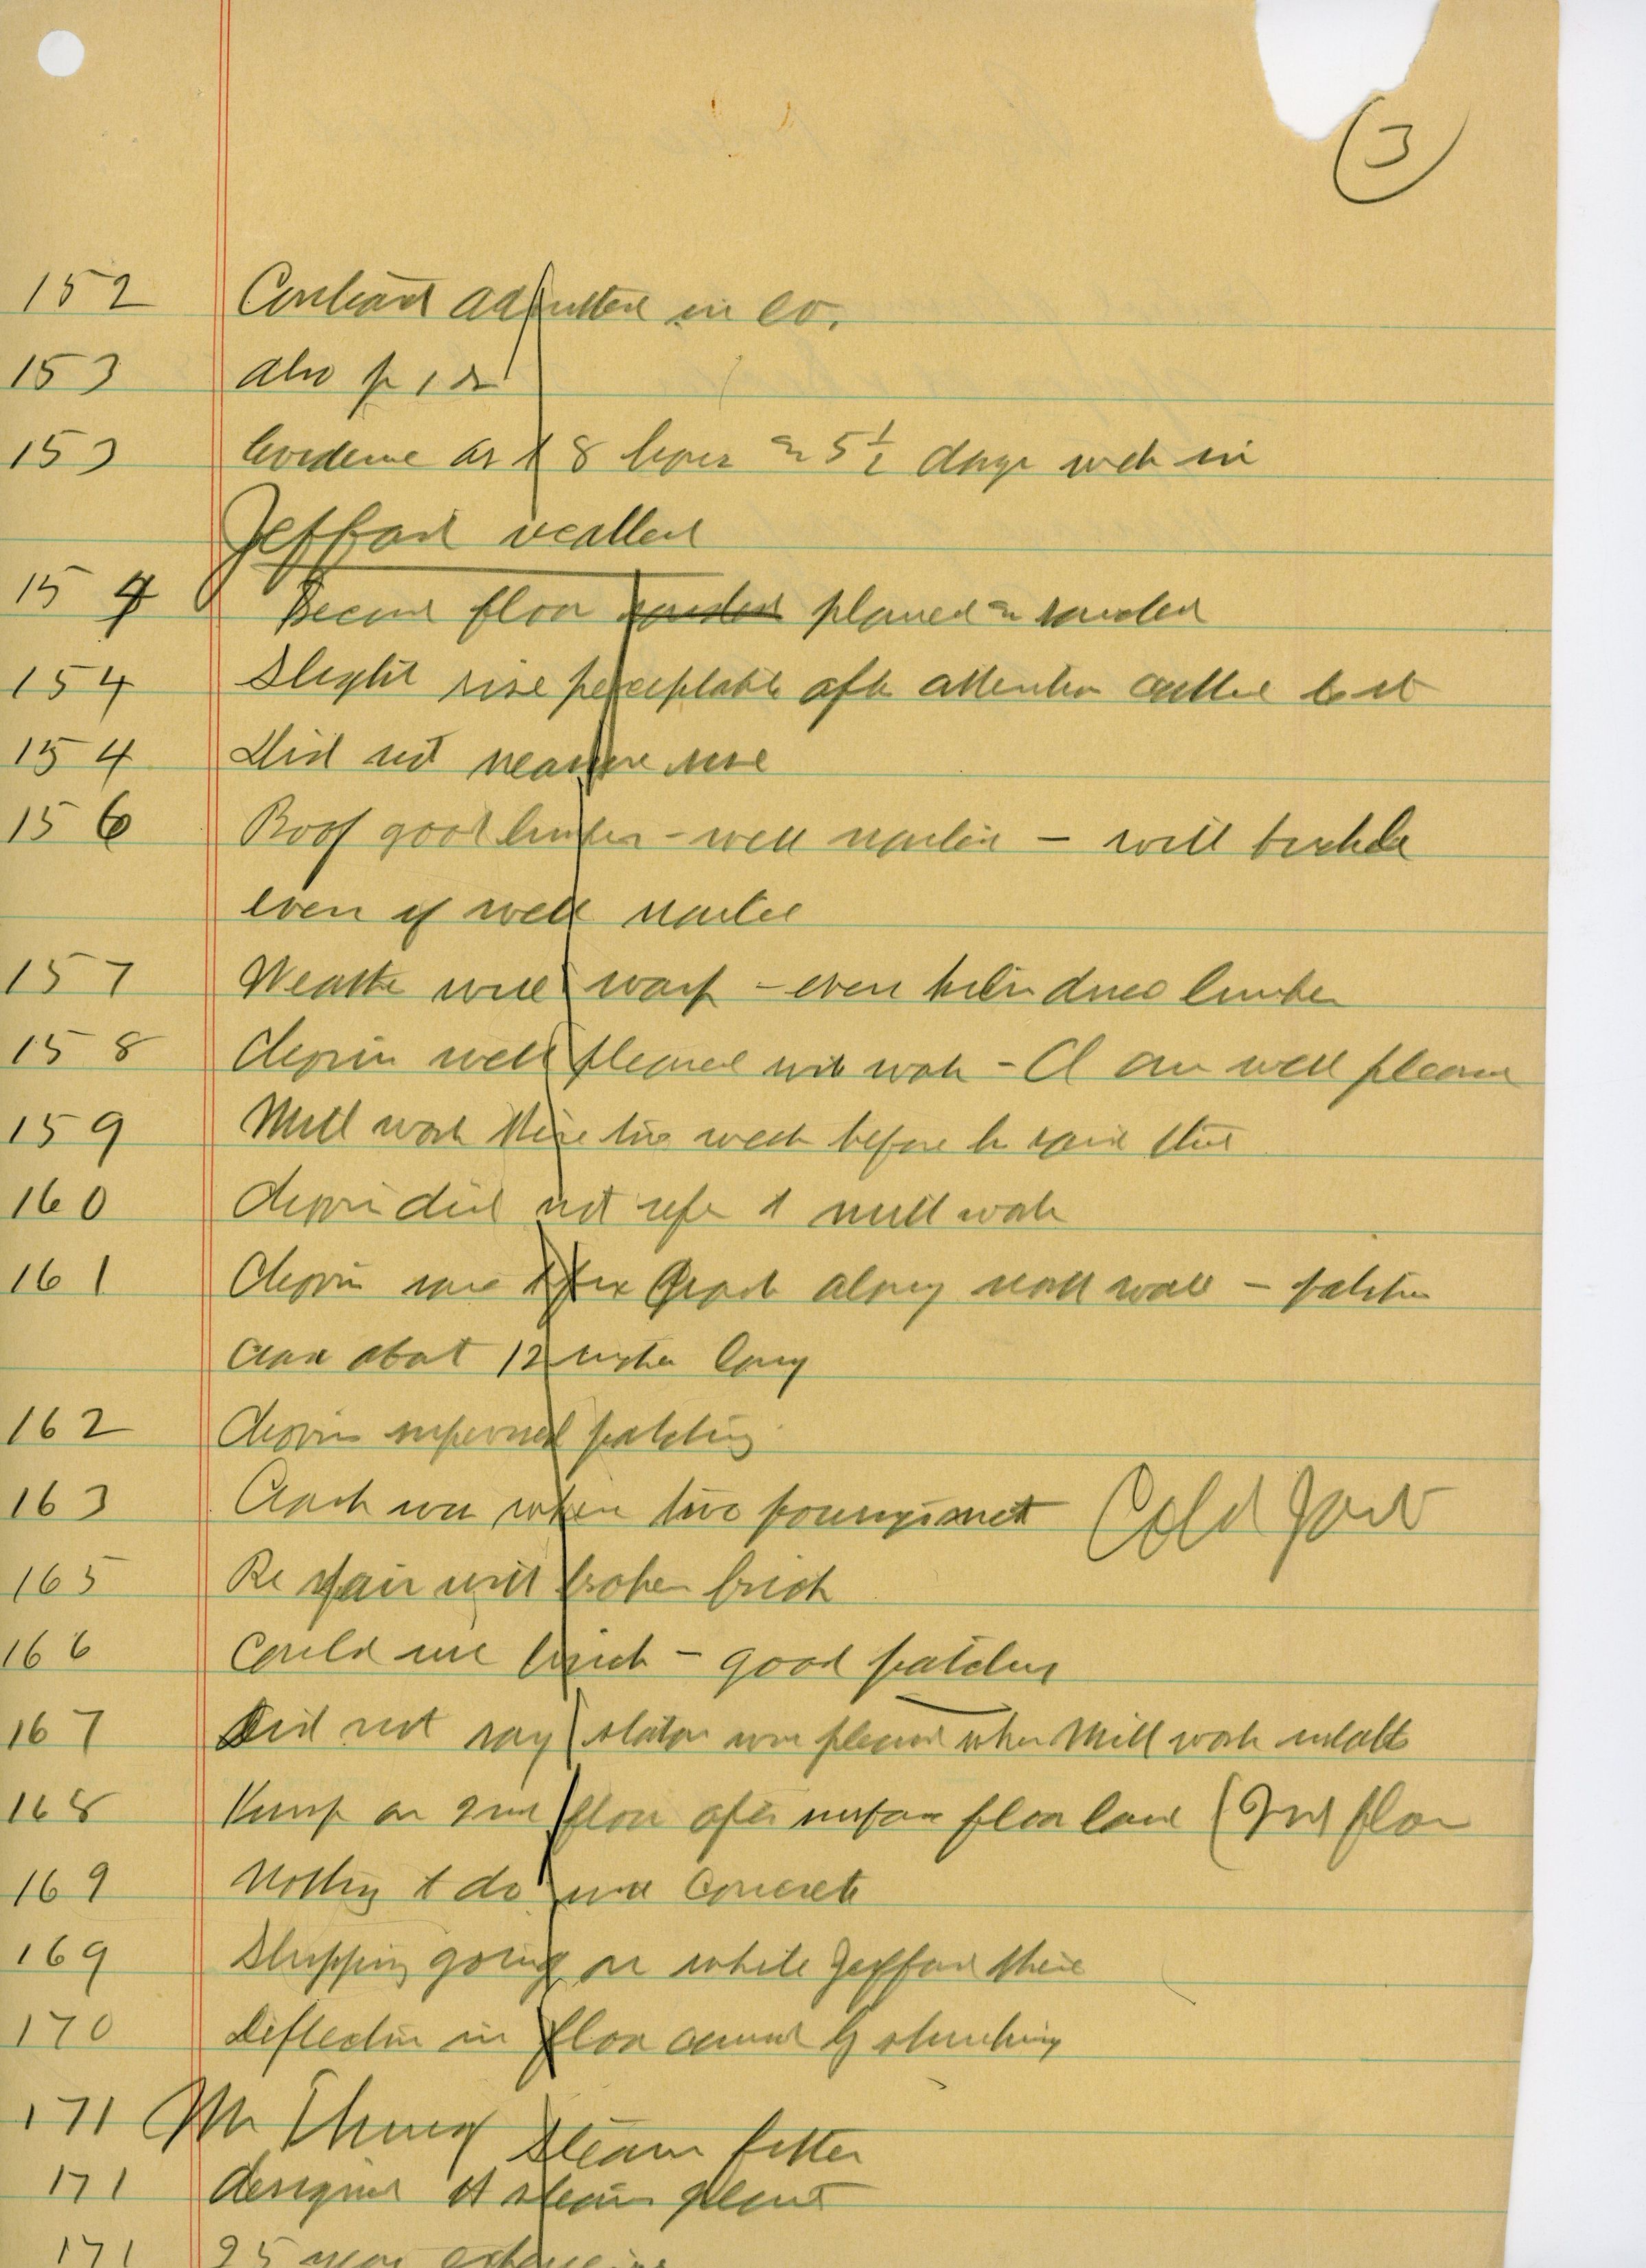 3
152 Contract admitted in ev.
153 Also p 1
153 Evidence as to 8 hours & 5 1/2 days week in
Jeffard recalled
154 Second floor sanded planed & sanded
154 Slight rise perceptable after attention called to it
154 Did not measure rise
156 Roof good lumber - well nailed - will buckle
even if well nailed
157 Weather will warp - even kiln dried lumber
158 well pleased with work - am well pleased
159 Mill work there two weeks before he said this
160 did not refer to mill work
161 to fix crack along wall - patches
crack about 12 inches long
162 supervised patching
163 Crack was where two pourings met Cold Joint
165 Repair with broken brick
166 Could use brick - good patching
167 Did not say Slator was pleased when Mill work installed
168 Hump on 2nd floor after surface floor laid (2nd floor
169 Nothing to do with concrete
169 Stripping going on while Jeffard there
170 Deflection in floor caused by
171 Mr Steam fitter
171 designed steam plant
171 25 year experience